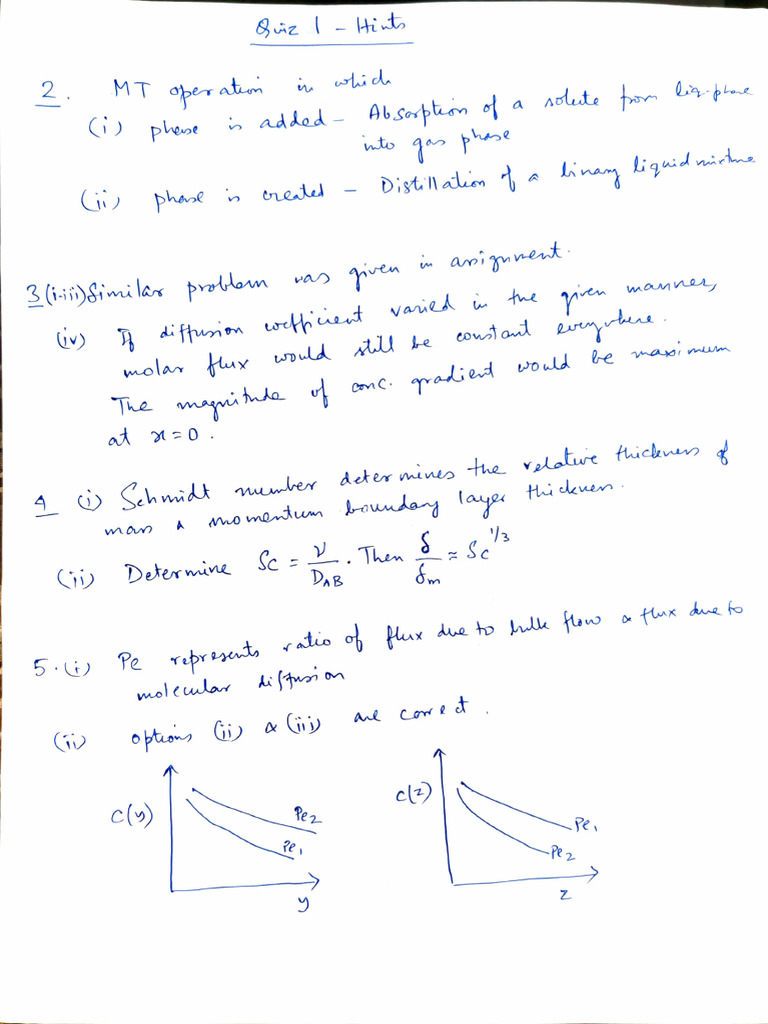 Quiz 1 - Hints
2. MT operation in which
(i) phase is added - Absorption of a solute from liq-phase
into gas phase
(ii) phase is created - Distillation of a binary liquid mixture
3 (i-iii) Similar problem was given in assignment.
(iv) If diffusion coefficient varied in the given manner,
molar flux would still be constant everywhere.
The magnitude of conc. gradient would be maximum
at x=0.
4 (i) Schmidt number determines the relative thickness of
mass & momentum boundary layer thickness.
(ii) Determine Sc = ν/D_AB. Then δ/δ_m ≈ Sc^1/3
5. (i) Pe represents ratio of flux due to bulk flow & flux due to
molecular diffusion
(ii) options (ii) & (iii) are correct.
C(y) Pe2 Pe1 y
C(z) Pe1 Pe2 z